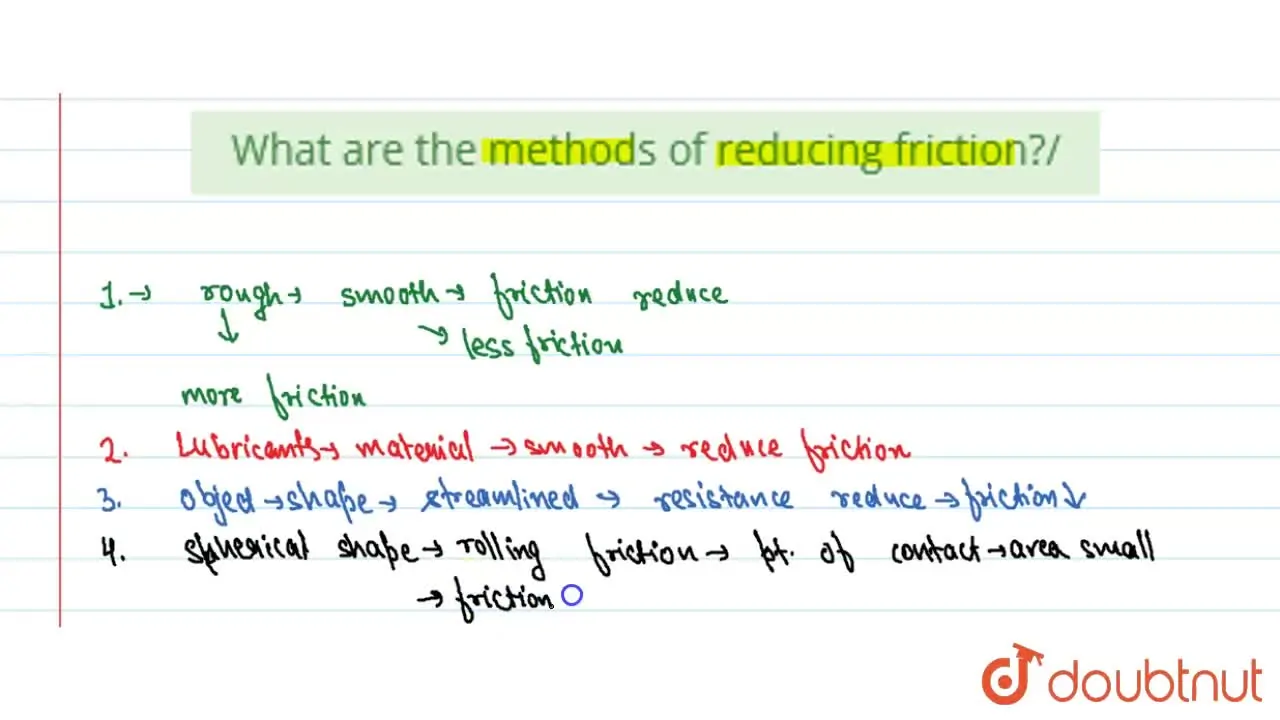 What are the methods of reducing friction?/
1. → rough → smooth → friction reduce
↓ → less friction
more friction
2. Lubricants → material → smooth → reduce friction
3. object → shape → streamlined → resistance reduce → friction ↓
4. spherical shape → rolling friction → pt. of contact → area small
→ friction
doubtnut